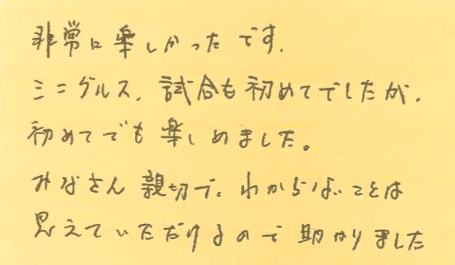 非常に楽しかったです.
ミニゲルス、試合も初めてでしたが、
初めてでも楽しめました。
みなさん親切で、わからないことは
教えていただけるので助かりました